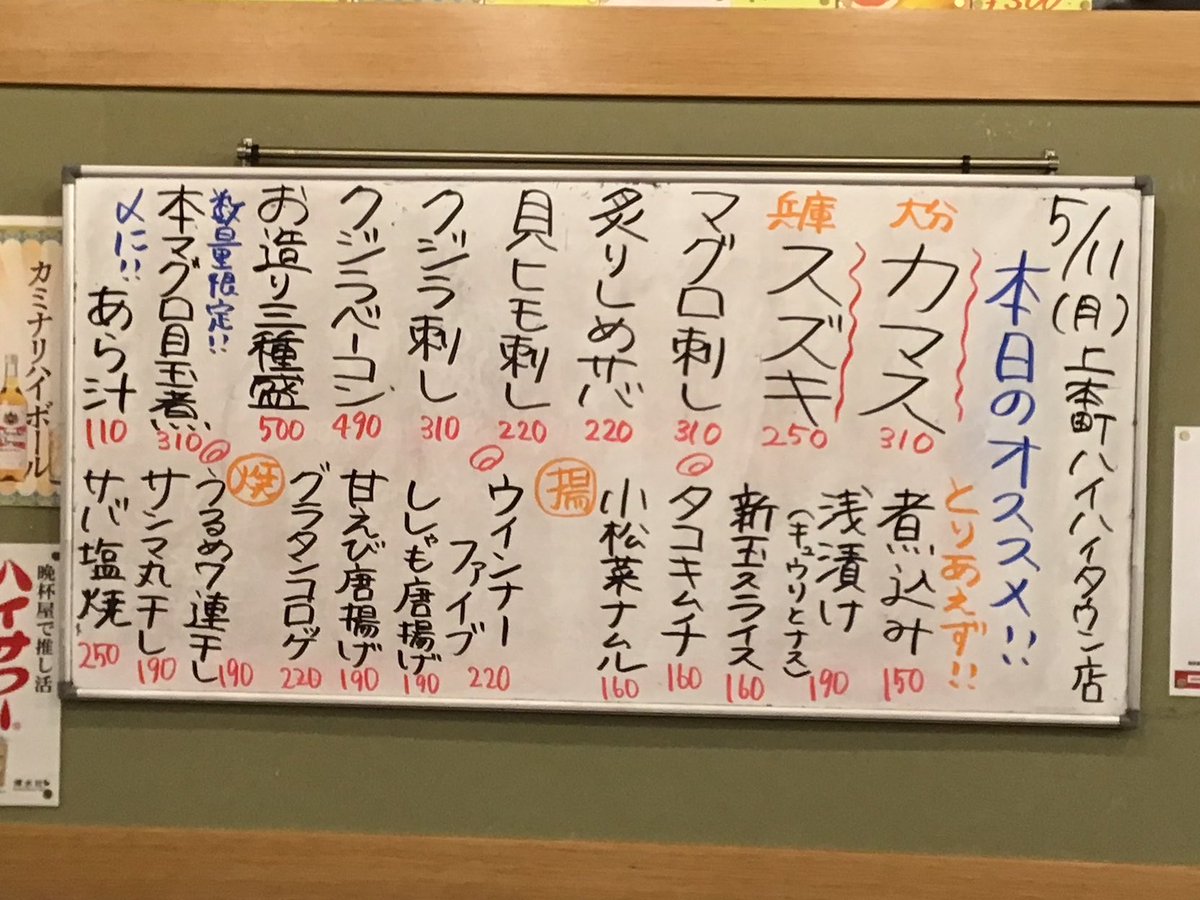 5/11(月)上本町ハイハイタウン店
本日のオススメ!!
大分
カマス
310
兵庫
スズキ
250
マグロ刺し
310
炙りしめサバ
220
貝ヒモ刺し
220
クジラ刺し
310
クジラベーコン
490
お造り三種盛
500
数量限定!!
本マグロ目玉煮
310
〆に!!
あら汁
110
とりあえず!!
煮込み
150
浅漬け
(キュウリとナス)
190
新玉スライス
160
タコキムチ
160
小松菜ナムル
160
揚
ウインナー
ファイブ
220
ししゃも唐揚げ
190
甘えび唐揚げ
190
グラタンコロッケ
220
焼
うるめ7連干し
190
サンマ丸干し
190
サバ塩焼
250
カミナリハイボール
晩杯屋で推し活
ハイサワー
¥300